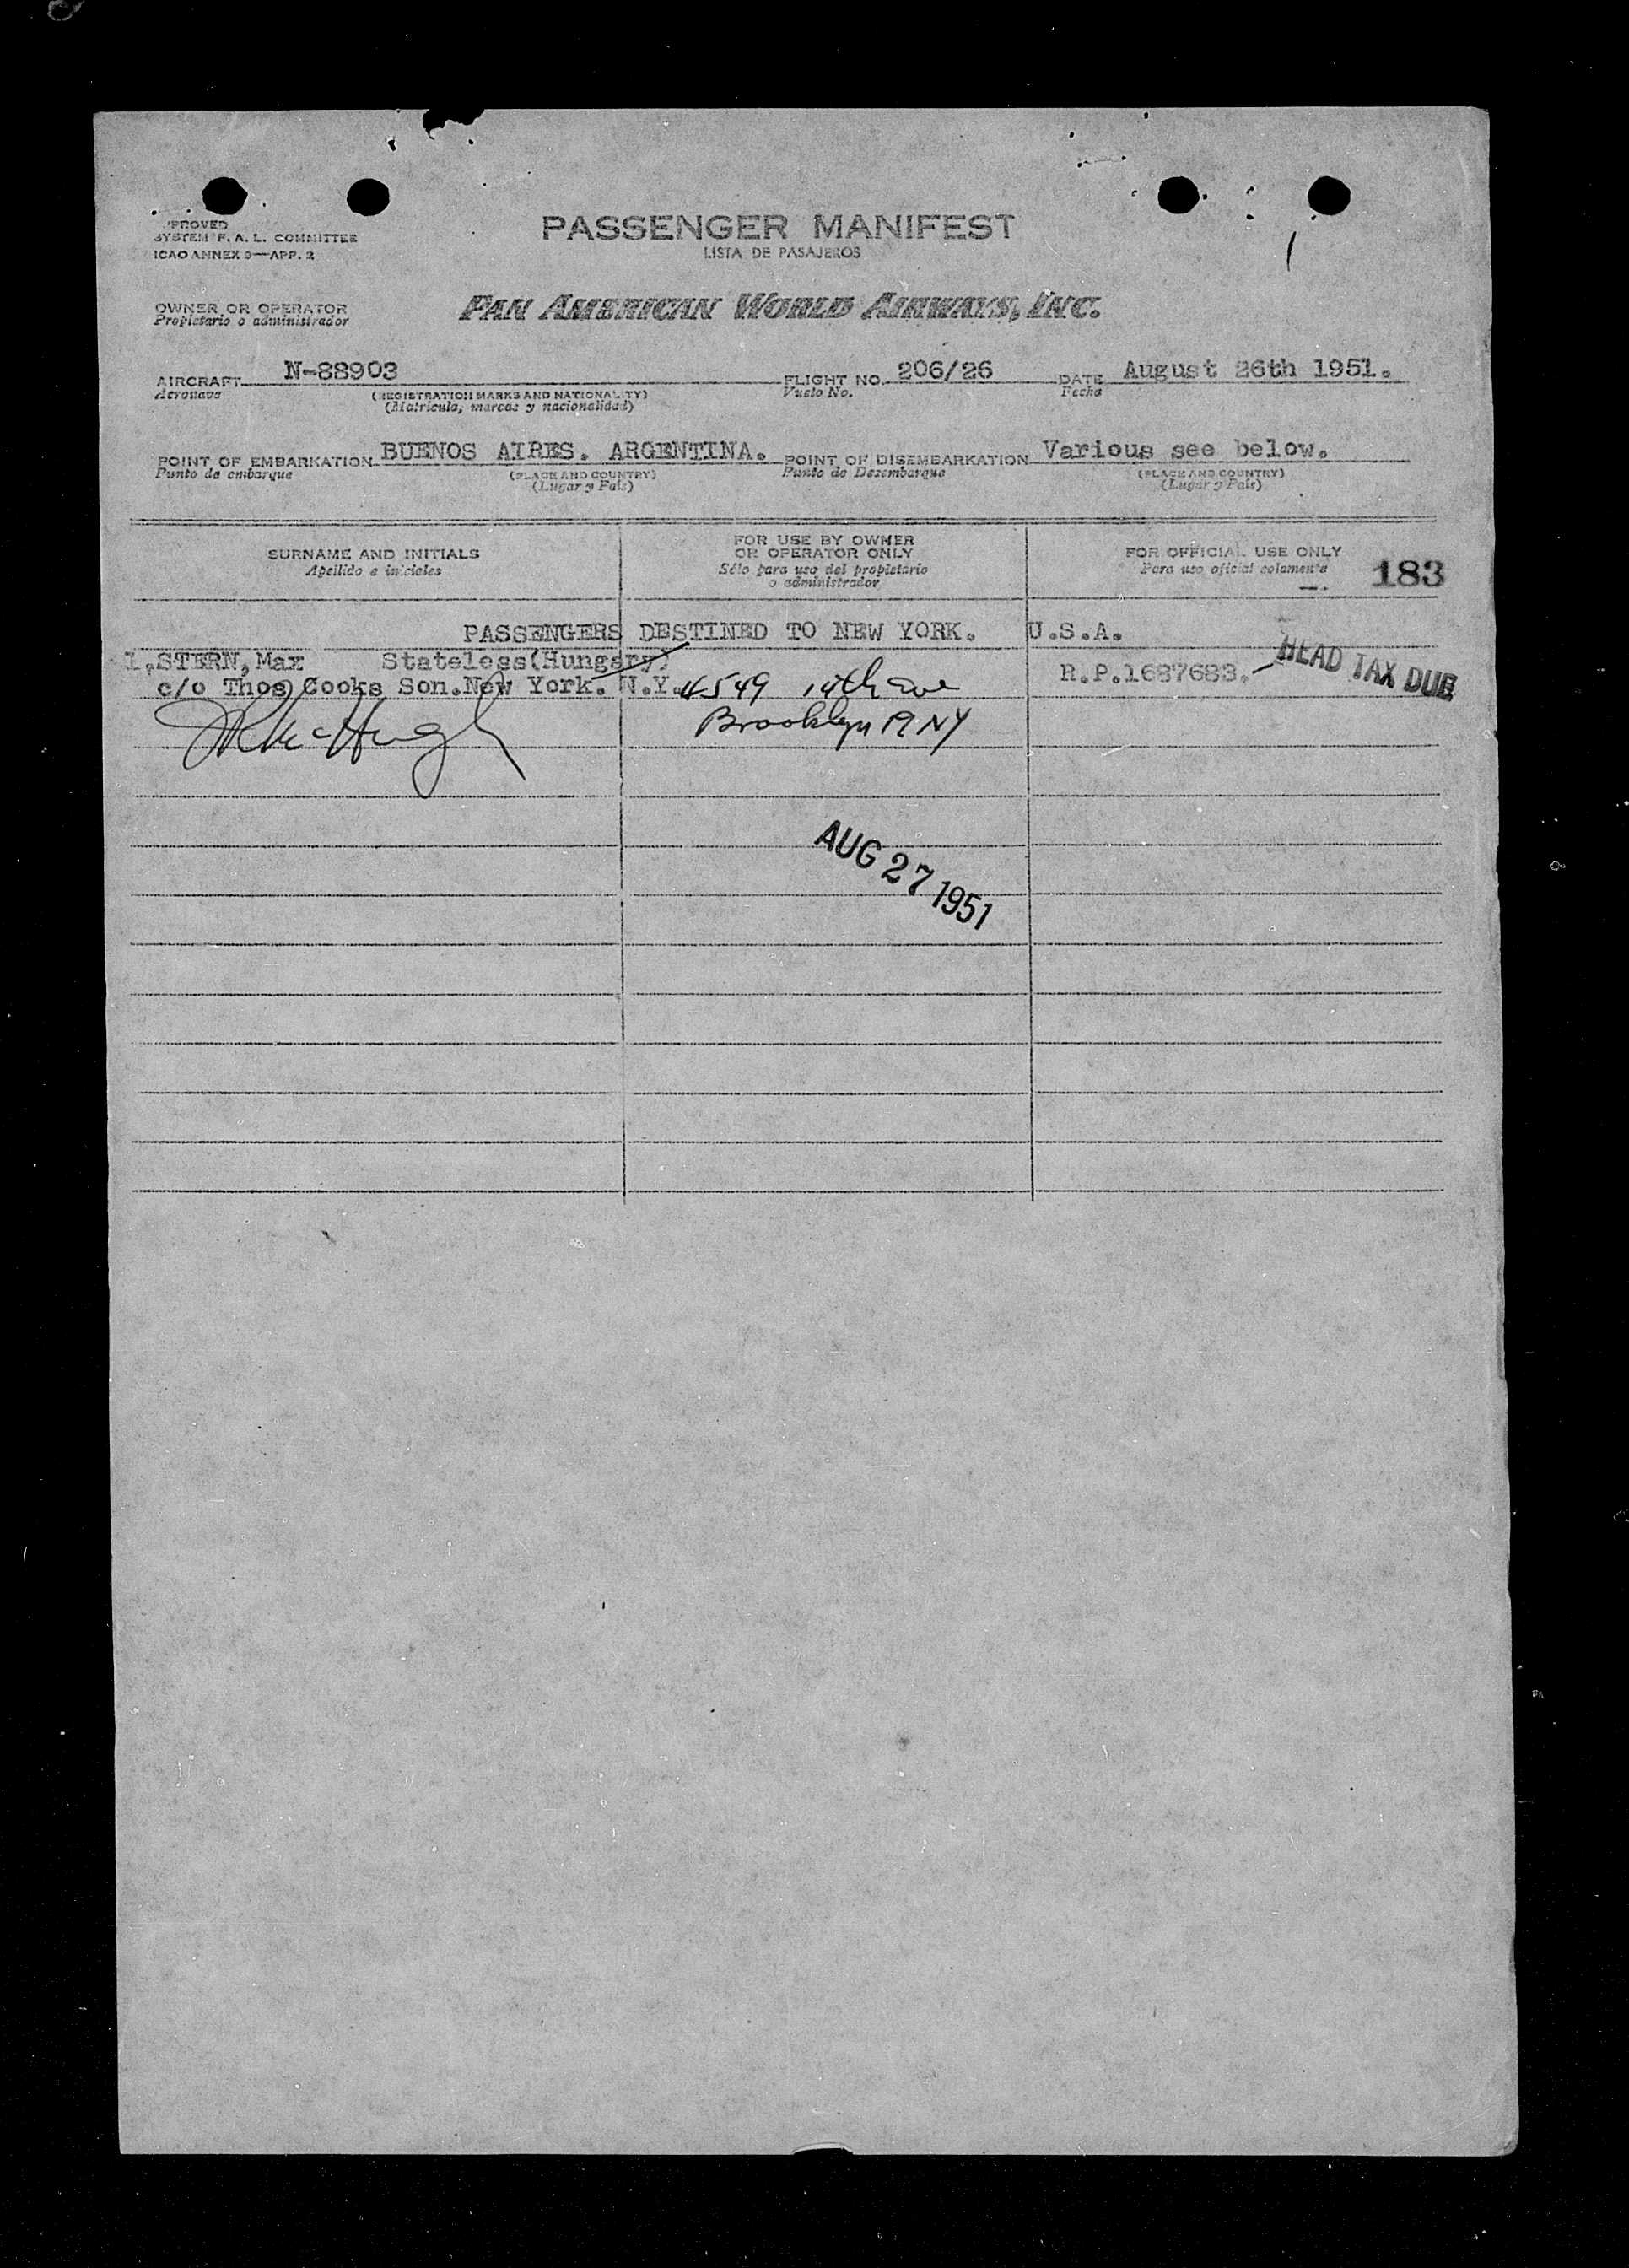 PROVED
SYSTEM F. A. L. COMMITTEE
ICAO ANNEX 9—APP. 2
PASSENGER MANIFEST
LISTA DE PASAJEROS
OWNER OR OPERATOR
Propietario o administrador
PAN AMERICAN WORLD AIRWAYS, INC.
AIRCRAFT N-88903 FLIGHT NO. 206/26 DATE August 26th 1951.
Aeronave (REGISTRATION MARKS AND NATIONALITY) Vuelo No. Fecha
(Matrícula, marcas y nacionalidad)
POINT OF EMBARKATION BUENOS AIRES. ARGENTINA. POINT OF DISEMBARKATION Various see below.
Punto de embarque (PLACE AND COUNTRY) Punto de Desembarque (PLACE AND COUNTRY)
(Lugar y País) (Lugar y País)
SURNAME AND INITIALS
Apellido e iniciales
FOR USE BY OWNER
OR OPERATOR ONLY
Sólo para uso del propietario
o administrador
FOR OFFICIAL USE ONLY
Para uso oficial solamente
183
PASSENGERS DESTINED TO NEW YORK. U.S.A.
1.STERN, Max Stateless(Hungary) R.P.1687683. HEAD TAX DUE
c/o Thos Cooks Son.New York. N.Y. 4549 14th ave
Brooklyn 19 NY
AUG 27 1951